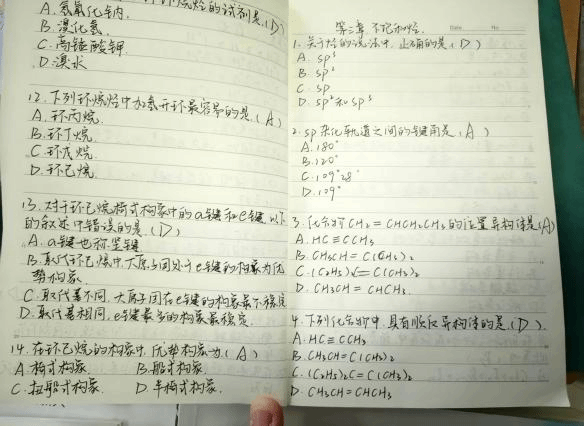 环烷烃的试剂是(D)
A.氢氧化钠.
B.溴化氢.
C.高锰酸钾.
D.溴水
12.下列环烷烃中加氢开环最容易的是.(A)
A.环丙烷.
B.环丁烷.
C.环戊烷.
D.环己烷.
13.对于环己烷椅式构象中的a键和e键,以下
的叙述中错误的是.(D)
A.a键也称竖键
B.取代环己烷中,大原子团处于e键的构象为优
势构象.
C.取代基不同,大原子团在e键的构象最不稳定
D.取代基相同,e键最多的构象最稳定.
14.在环己烷的构象中,优势构象为(A)
A.椅式构象 B.船式构象
C.扭船式构象. D.半椅式构象.
第三章 不饱和烃.
Date No
1.关于烃的说法中,正确的是(D)
A. sp³
B. sp²
C. sp
D. sp²和sp³
2.sp杂化轨道之间的键角是.(A)
A.180°
B.120°
C.109°28′
D.109°
3.化合物CH₂=CHCH₂CH₃的位置异构体是(A)
A. HC≡CCH₃
B. CH₃CH=C(CH₃)₂
C. (C₂H₅)₂C=C(CH₃)₂
D. CH₃CH=CHCH₃.
4.下列化合物中,具有顺反异构体的是.(D)
A. HC≡CCH₃
B. CH₃CH=C(CH₃)₂
C. (C₂H₅)₂C=C(CH₃)₂
D. CH₃CH=CHCH₃